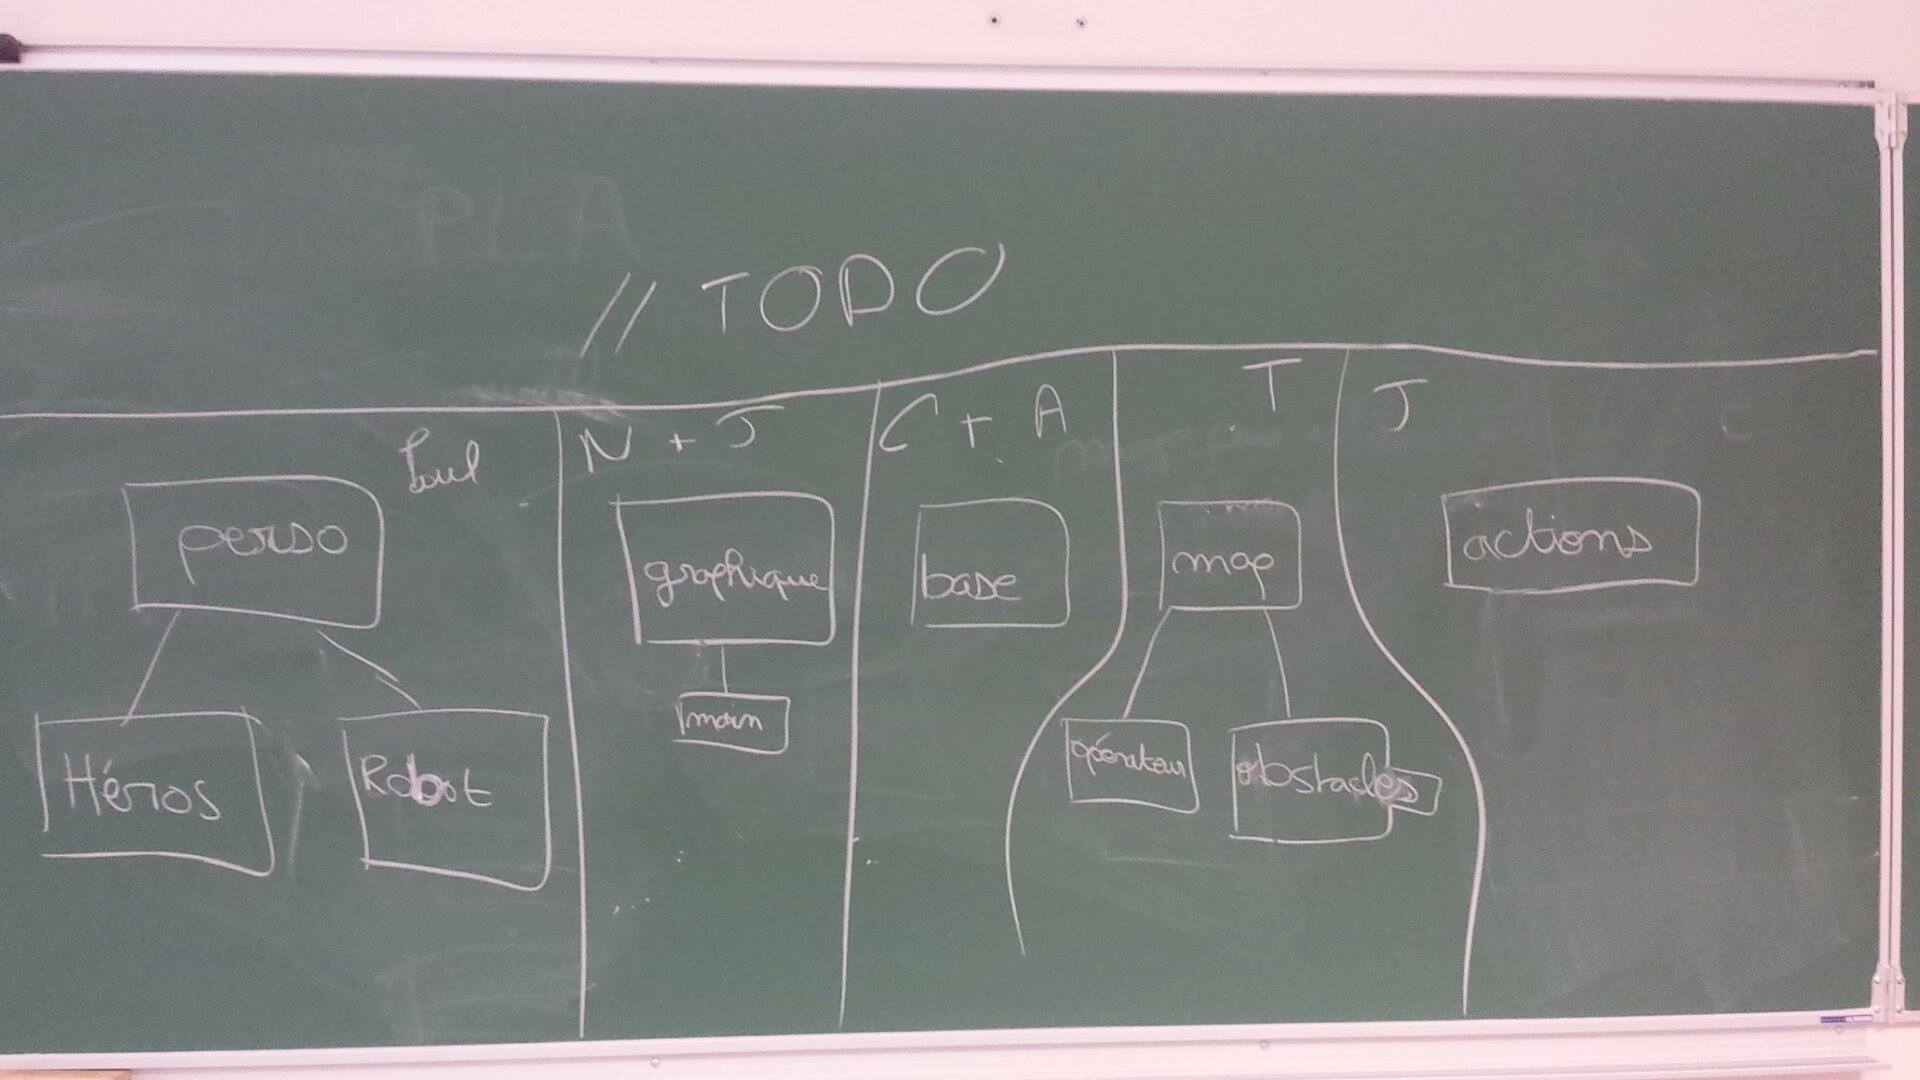 PLA
// TODO
Paul
perso
Héros
Robot
N + J
graphique
main
C + A
base
T
map
opérateur
obstacles
J
actions